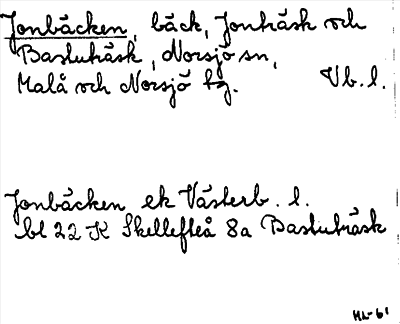 Jonbäcken, bäck, Jonträsk och
Bastuträsk, Norsjö sn,
Malå och Norsjö tg. Vb. l.
Jonbäcken ek Västerb. l.
bl 22 K Skellefteå 8a Bastuträsk
HL-61